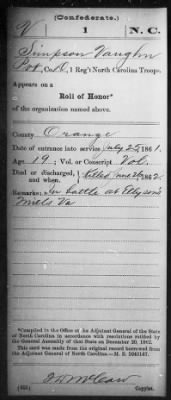 (Confederate.)
V 1 N. C.
Simpson Vaughn
Pvt, Co. D, 1 Reg't North Carolina Troops.
Appears on a
Roll of Honor*
of the organization named above.
County Orange
Date of entrance into service July 25, 1861.
Age 19; Vol. or Conscript Vol.
Died or discharged, and when. Killed June 26, 1862.
Remarks: In battle at Ellyson's
Mills Va
*Compiled in the Office of the Adjutant General of the State
of North Carolina in accordance with resolutions ratified by
the General Assembly of that State
This card was made from the original record borrowed from
the Adjutant General of North Carolina.—M. S.
Copyist.